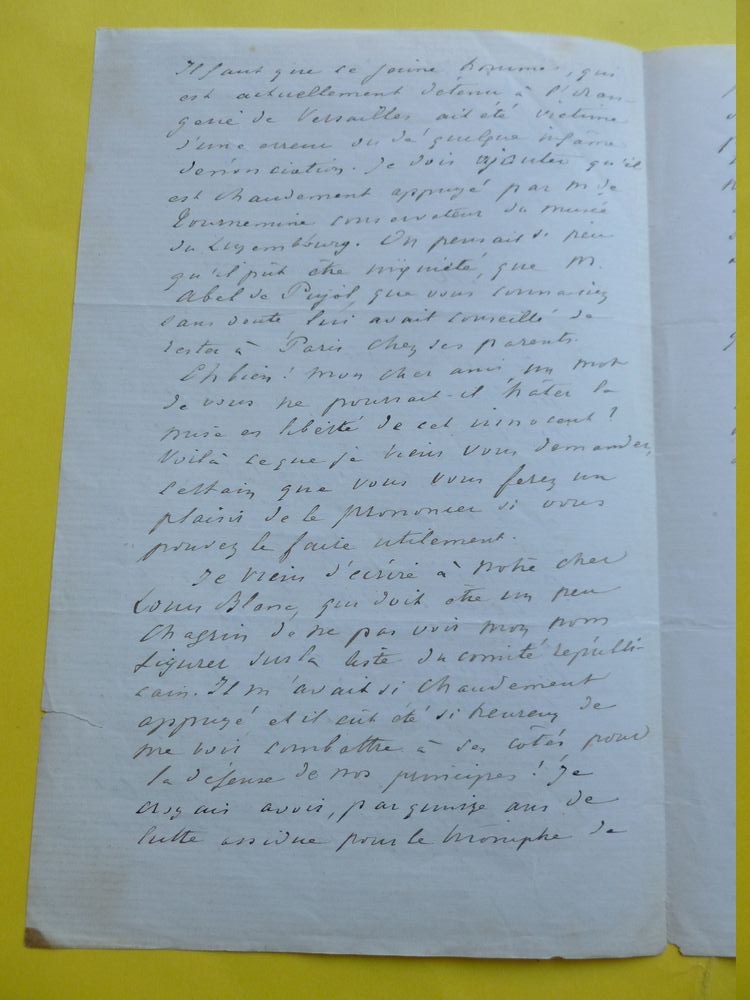 Il faut que ce jeune homme, qui
est actuellement détenu à l'Oran-
gerie de Versailles ait été victime
d'une erreur ou de quelque infâme
dénonciation. Je dois ajouter qu'il
est chaudement appuyé par M. de
Tournemine conservateur du musée
du Luxembourg. On pensait si peu
qu'il pût être inquiété, que M.
Abel de Pujol, que vous connaissiez
sans doute lui avait conseillé de
rester à Paris chez ses parents.
Eh bien! mon cher ami, un mot
de vous ne pourrait-il hâter la
mise en liberté de cet innocent?
Voilà ce que je viens vous demander,
certain que vous vous ferez un
plaisir de le prononcer si vous
pouvez le faire utilement.
Je viens d'écrire à notre cher
Louis Blanc, qui doit être un peu
chagrin de ne pas voir mon nom
figurer sur la liste du comité républi-
cain. Il m'avait si chaudement
appuyé et il eût été si heureux de
me voir combattre à ses côtés pour
la défense de nos principes! Je
croyais avoir, par quinze ans de
lutte assidue pour le triomphe de